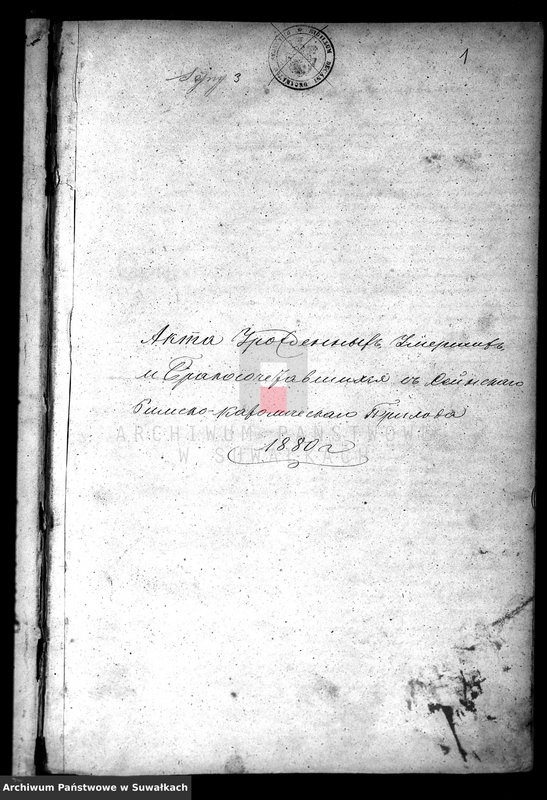 Sejny 3
1
Акта Урожденныхъ Умершихъ
и Бракосочетавшихся съ Сейнскаго
Римско-католическаго Прихода
1880 г
ARCHIWUM PAŃSTWOWE
W SUWAŁKACH
Archiwum Państwowe w Suwałkach